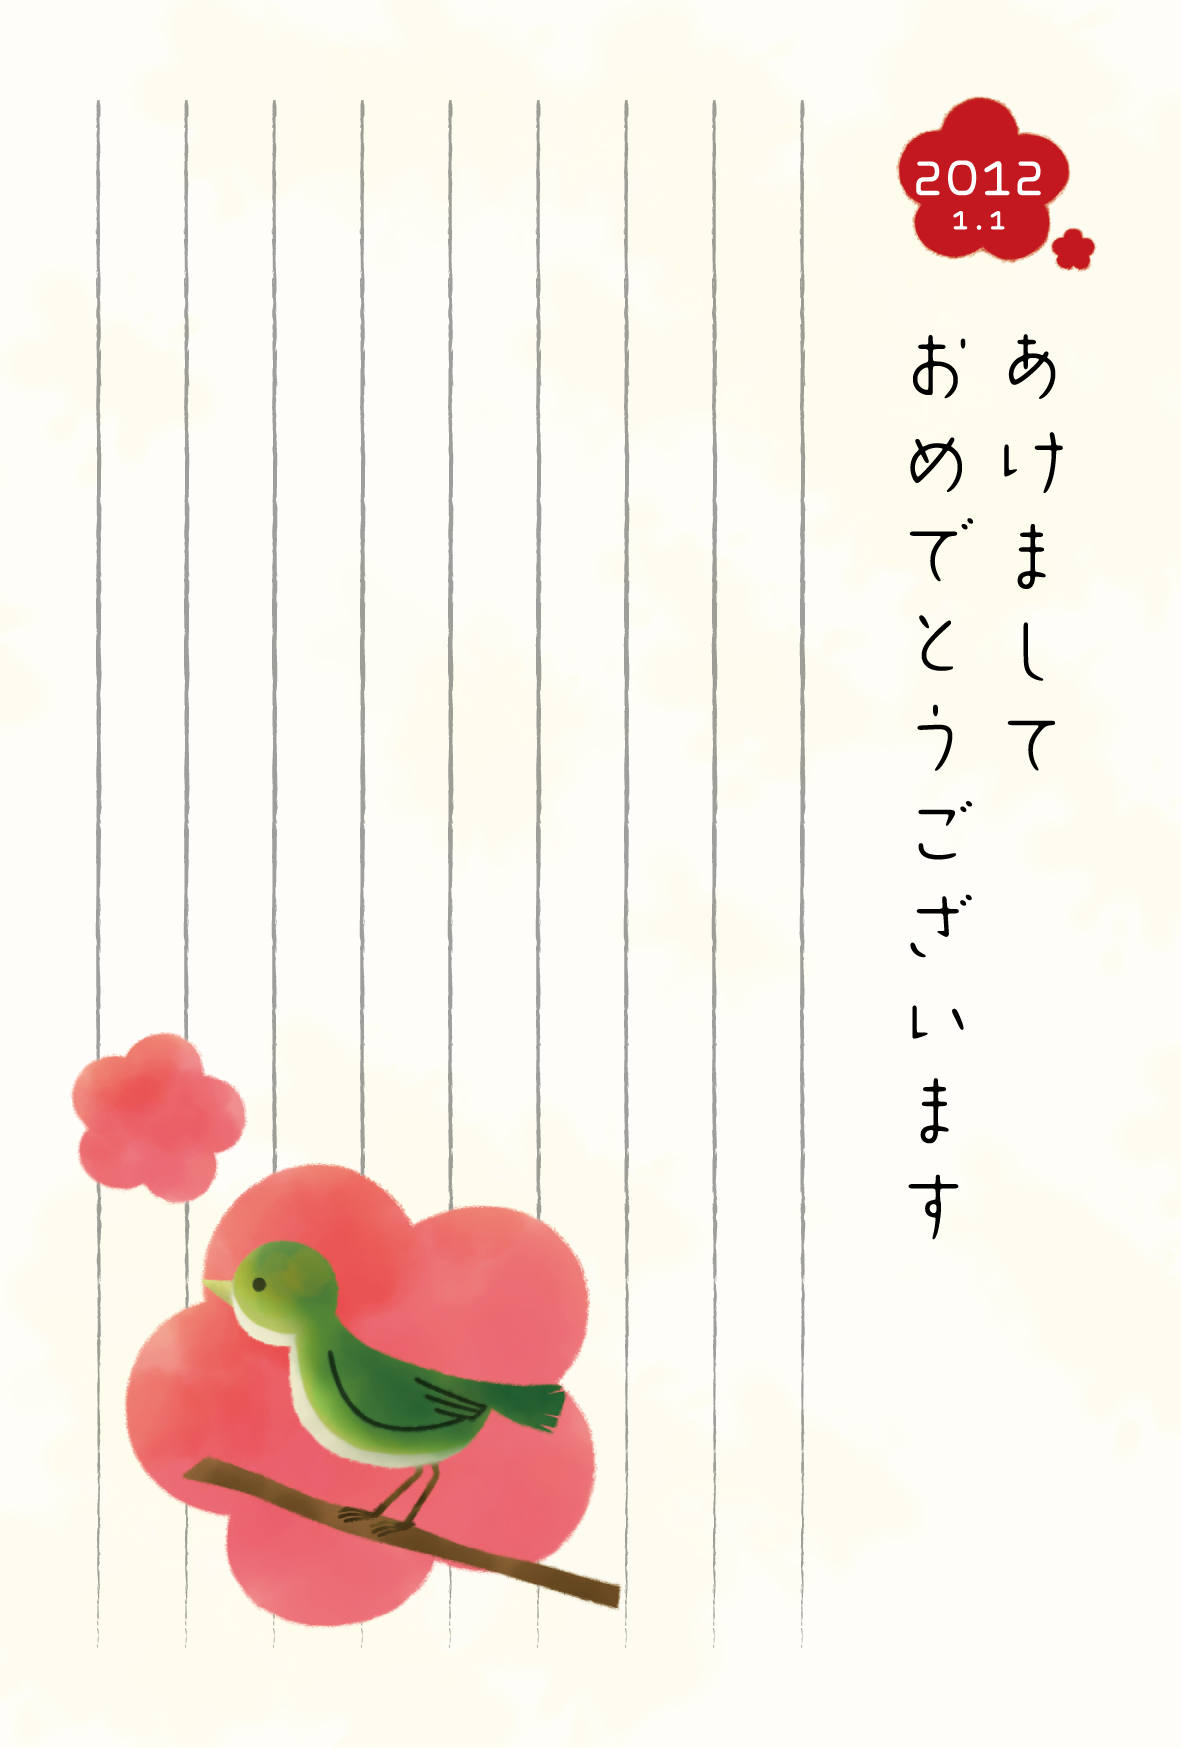 2012
1.1
あけまして
おめでとうございます